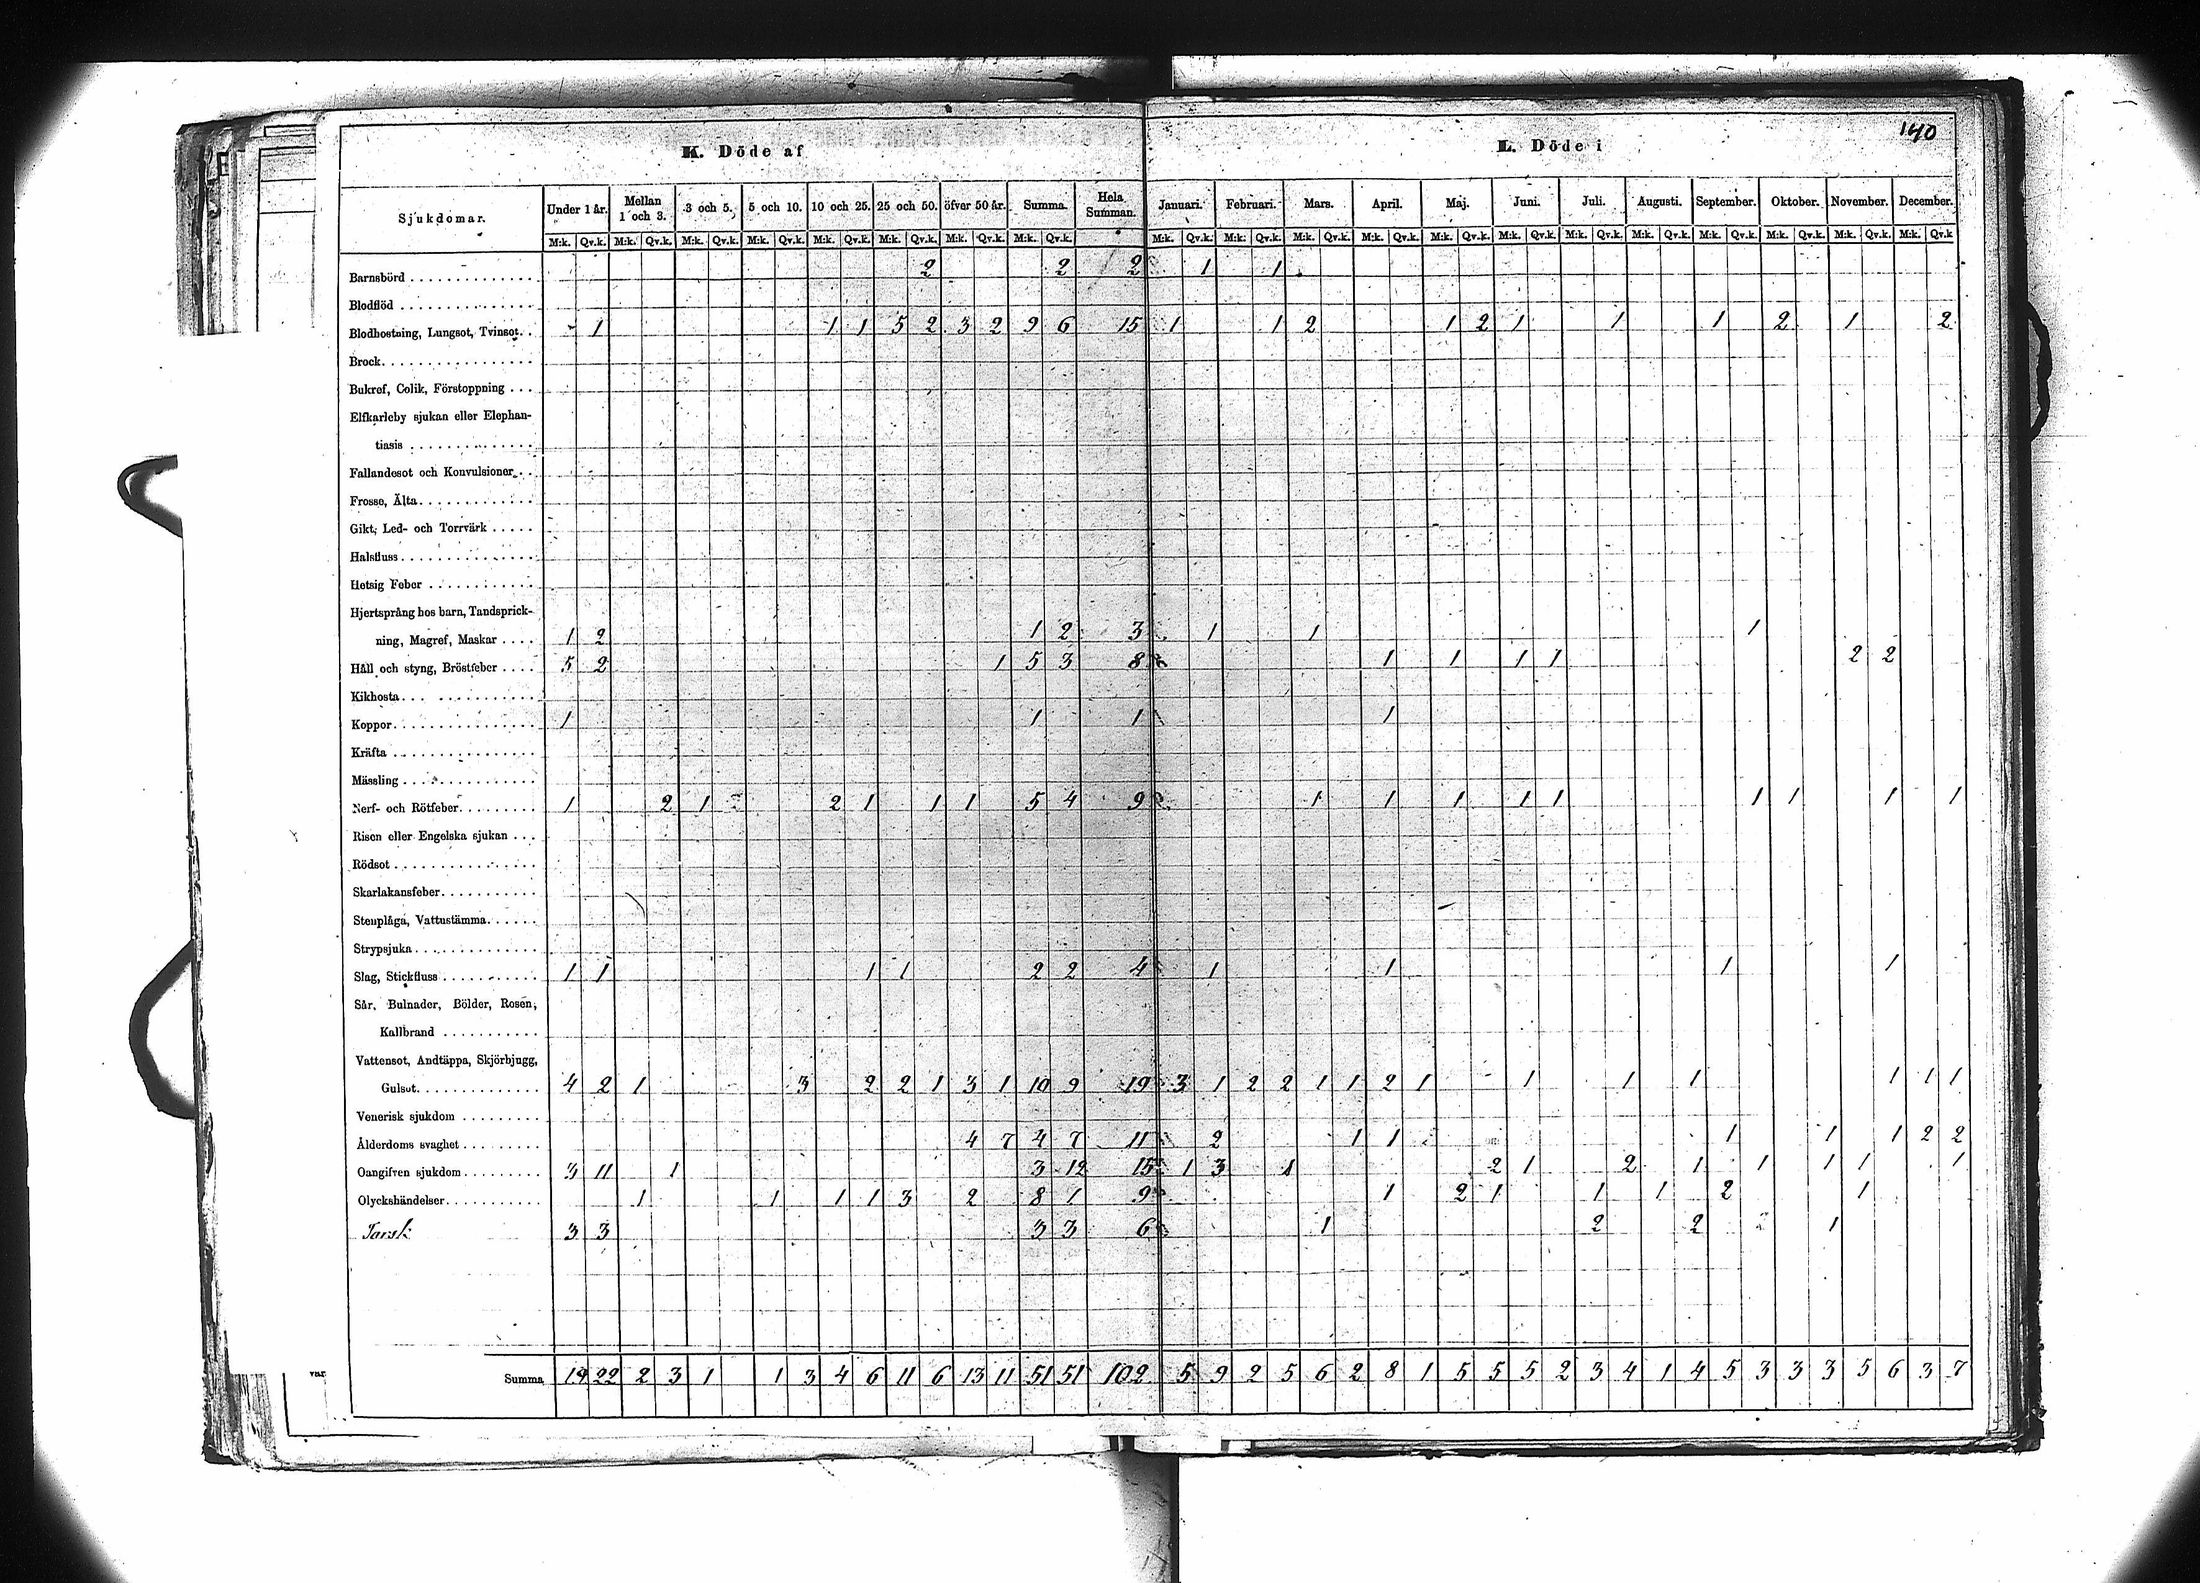 140
K. Döde af
L. Döde i
Sjukdomar. Under 1 år. Mellan 1 och 3. 3 och 5. 5 och 10. 10 och 25. 25 och 50. öfver 50 år. Summa. Hela Summan. Januari. Februari. Mars. April. Maj. Juni. Juli. Augusti. September. Oktober. November. December.
M:k. Qv.k. M:k. Qv.k. M:k. Qv.k. M:k. Qv.k. M:k. Qv.k. M:k. Qv.k. M:k. Qv.k. M:k. Qv.k. M:k. Qv.k. M:k. Qv.k. M:k. Qv.k. M:k. Qv.k. M:k. Qv.k. M:k. Qv.k. M:k. Qv.k. M:k. Qv.k. M:k. Qv.k. M:k. Qv.k. M:k. Qv.k. M:k. Qv.k
Barnsbörd 2 2 2 1 1
Blodflöd
Blodhostning, Lungsot, Tvinsot. 1 1 1 5 2 3 2 9 6 15 1 1 2 1 2 1 1 1 2 1 2
Brock
Bukref, Colik, Förstoppning
Elfkarleby sjukan eller Elephan-
tiasis
Fallandesot och Konvulsioner
Frosse, Älta
Gikt, Led- och Torrvärk
Halsfluss
Hetsig Feber
Hjertsprång hos barn, Tandsprick-
ning, Magref, Maskar 1 2 1 2 3 1 1 1
Håll och styng, Bröstfeber 5 2 1 5 3 8 1 1 1 1 2 2
Kikhosta
Koppor 1 1 1 1
Kräfta
Mässling
Nerf- och Rötfeber 1 2 1 2 1 1 1 5 4 9 1 1 1 1 1 1 1 1 1
Risen eller Engelska sjukan
Rödsot
Skarlakansfeber
Stenplåga, Vattustämma
Strypsjuka
Slag, Stickfluss 1 1 1 1 2 2 4 1 1 1 1
Sår, Bulnader, Bölder, Rosen,
Kallbrand
Vattensot, Andtäppa, Skjörbjugg,
Gulsot 4 2 1 3 2 2 1 3 1 10 9 19 3 1 2 2 1 1 2 1 1 1 1 1 1 1
Venerisk sjukdom
Ålderdoms svaghet 4 7 4 7 11 2 1 1 1 1 1 2 2
Oangifven sjukdom 3 11 1 3 12 15 1 3 1 2 1 2 1 1 1 1 1
Olyckshändelser 1 1 1 1 3 2 8 1 9 1 2 1 1 1 2 1
Torsk 3 3 3 3 6 1 2 2 1
Summa 19 22 2 3 1 1 3 4 6 11 6 13 11 51 51 102 5 9 2 5 6 2 8 1 5 5 5 2 3 4 1 4 5 3 3 3 5 6 3 7